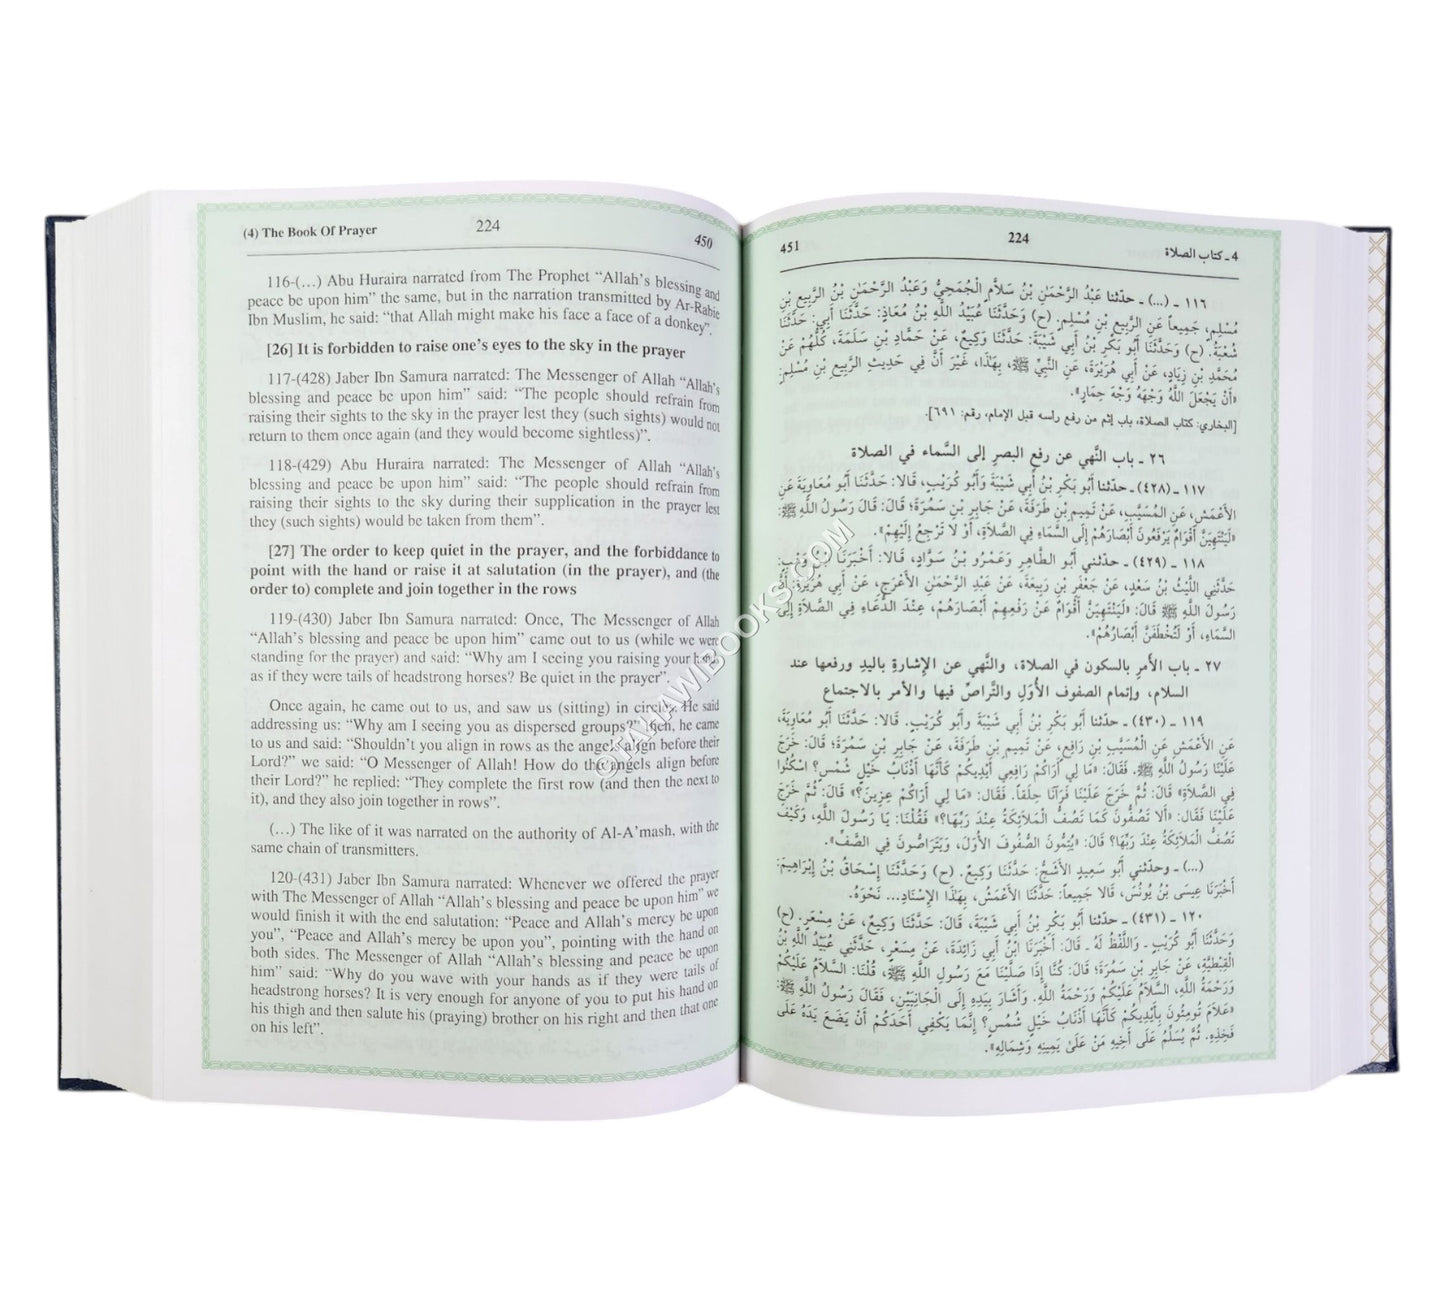 (4) The Book Of Prayer 224 450
116-(…) Abu Huraira narrated from The Prophet “Allah’s blessing and
peace be upon him” the same, but in the narration transmitted by Ar-Rabie
Ibn Muslim, he said: “that Allah might make his face a face of a donkey”.
[26] It is forbidden to raise one’s eyes to the sky in the prayer
117-(428) Jaber Ibn Samura narrated: The Messenger of Allah “Allah’s
blessing and peace be upon him” said: “The people should refrain from
raising their sights to the sky in the prayer lest they (such sights) would not
return to them once again (and they would become sightless)”.
118-(429) Abu Huraira narrated: The Messenger of Allah “Allah’s
blessing and peace be upon him” said: “The people should refrain from
raising their sights to the sky during their supplication in the prayer lest
they (such sights) would be taken from them”.
[27] The order to keep quiet in the prayer, and the forbiddance to
point with the hand or raise it at salutation (in the prayer), and (the
order to) complete and join together in the rows
119-(430) Jaber Ibn Samura narrated: Once, The Messenger of Allah
“Allah’s blessing and peace be upon him” came out to us (while we were
standing for the prayer) and said: “Why am I seeing you raising your
as if they were tails of headstrong horses? Be quiet in the prayer”.
Once again, he came out to us, and saw us (sitting) in circles. He said
addressing us: “Why am I seeing you as dispersed groups?” Then, he came
to us and said: “Shouldn’t you align in rows as the angels align before their
Lord?” we said: “O Messenger of Allah! How do the angels align before
their Lord?” he replied: “They complete the first row (and then the next to
it), and they also join together in rows”.
(…) The like of it was narrated on the authority of Al-A’mash, with the
same chain of transmitters.
120-(431) Jaber Ibn Samura narrated: Whenever we offered the prayer
with The Messenger of Allah “Allah’s blessing and peace be upon him” we
would finish it with the end salutation: “Peace and Allah’s mercy be upon
you”, “Peace and Allah’s mercy be upon you”, pointing with the hand on
both sides. The Messenger of Allah “Allah’s blessing and peace be upon
him” said: “Why do you wave with your hands as if they were tails of
headstrong horses? It is very enough for anyone of you to put his hand on
his thigh and then salute his (praying) brother on his right and then that one
on his left”.
451 224 4 ـ كتاب الصلاة
١١٦ ـ (...) ـ حدّثنا عَبْدُ الرَّحْمَٰنِ بْنُ سَلاَّمٍ الْجُمَحِيُّ وَعَبْدُ الرَّحْمَٰنِ بْنُ الرَّبِيعِ بْنِ
مُسْلِمٍ، جَمِيعاً عَنِ الرَّبِيعِ بْنِ مُسْلِمٍ. (ح) وَحَدَّثَنَا عُبَيْدُ اللَّهِ بْنُ مُعَاذٍ: حَدَّثَنَا أَبِي: حَدَّثَنَا
شُعْبَةُ. (ح) وَحَدَّثَنَا أَبُو بَكْرِ بْنُ أَبِي شَيْبَةَ: حَدَّثَنَا وَكِيعٌ، عَنْ حَمَّادِ بْنِ سَلَمَةَ، كُلُّهُمْ عَنْ
مُحَمَّدِ بْنِ زِيَادٍ، عَنْ أَبِي هُرَيْرَةَ، عَنِ النَّبِيِّ ﷺ، بِهَذَا، غَيْرَ أَنَّ فِي حَدِيثِ الرَّبِيعِ بْنِ مُسْلِمٍ:
«أَنْ يَجْعَلَ اللَّهُ وَجْهَهُ وَجْهَ حِمَارٍ».
[البخاري: كتاب الصلاة، باب إثم من رفع رأسه قبل الإمام، رقم: ٦٩١].
٢٦ ـ باب النَّهي عن رفعِ البصرِ إلى السَّماء في الصلاة
١١٧ ـ (٤٢٨) ـ حدّثنا أَبُو بَكْرِ بْنُ أَبِي شَيْبَةَ وَأَبُو كُرَيْبٍ، قَالا: حَدَّثَنَا أَبُو مُعَاوِيَةَ عَنِ
الأَعْمَشِ، عَنِ الْمُسَيَّبِ، عَنْ تَمِيمِ بْنِ طَرَفَةَ، عَنْ جَابِرِ بْنِ سَمُرَةَ؛ قَالَ: قَالَ رَسُولُ اللَّهِ ﷺ:
«لَيَنْتَهِيَنَّ أَقْوَامٌ يَرْفَعُونَ أَبْصَارَهُمْ إِلَى السَّمَاءِ فِي الصَّلاَةِ، أَوْ لاَ تَرْجِعُ إِلَيْهِمْ».
١١٨ ـ (٤٢٩) ـ حدّثني أَبُو الطَّاهِرِ وَعَمْرُو بْنُ سَوَّادٍ، قَالا: أَخْبَرَنَا ابْنُ وَهْبٍ:
حَدَّثَنِي اللَّيْثُ بْنُ سَعْدٍ، عَنْ جَعْفَرِ بْنِ رَبِيعَةَ، عَنْ عَبْدِ الرَّحْمَٰنِ الأَعْرَجِ، عَنْ أَبِي هُرَيْرَةَ؛ أَنَّ
رَسُولَ اللَّهِ ﷺ قَالَ: «لَيَنْتَهِيَنَّ أَقْوَامٌ عَنْ رَفْعِهِمْ أَبْصَارَهُمْ، عِنْدَ الدُّعَاءِ فِي الصَّلاَةِ إِلَى
السَّمَاءِ، أَوْ لَتُخْطَفَنَّ أَبْصَارُهُمْ».
٢٧ ـ باب الأمرِ بالسكون في الصلاة، والنَّهي عن الإشارةِ باليدِ ورفعها عند
السلام، وإتمام الصفوف الأُوَلِ والتَّراصِّ فيها والأمر بالاجتماع
١١٩ ـ (٤٣٠) ـ حدّثنا أَبُو بَكْرِ بْنُ أَبِي شَيْبَةَ وأَبُو كُرَيْبٍ. قَالا: حَدَّثَنَا أَبُو مُعَاوِيَةَ،
عَنِ الأَعْمَشِ عَنِ الْمُسَيَّبِ بْنِ رَافِعٍ، عَنْ تَمِيمِ بْنِ طَرَفَةَ، عَنْ جَابِرِ بْنِ سَمُرَةَ؛ قَالَ: خَرَجَ
عَلَيْنَا رَسُولُ اللَّهِ ﷺ. فَقَالَ: «مَا لِي أَرَاكُمْ رَافِعِي أَيْدِيكُمْ كَأَنَّهَا أَذْنَابُ خَيْلٍ شُمْسٍ؟ اسْكُنُوا
فِي الصَّلاَةِ» قَالَ: ثُمَّ خَرَجَ عَلَيْنَا فَرَآنَا حِلَقاً. فَقَالَ: «مَا لِي أَرَاكُمْ عِزِينَ؟» قَالَ: ثُمَّ خَرَجَ
عَلَيْنَا فَقَالَ: «أَلا تَصُفُّونَ كَمَا تَصُفُّ الْمَلاَئِكَةُ عِنْدَ رَبِّهَا؟» فَقُلْنَا: يَا رَسُولَ اللَّهِ، وَكَيْفَ
تَصُفُّ الْمَلاَئِكَةُ عِنْدَ رَبِّهَا؟ قَالَ: «يُتِمُّونَ الصُّفُوفَ الأُوَلَ، وَيَتَرَاصُّونَ فِي الصَّفِّ».
(...) ـ وحدّثني أَبُو سَعِيدٍ الأَشَجُّ: حَدَّثَنَا وَكِيعٌ. (ح) وَحَدَّثَنَا إِسْحَاقُ بْنُ إِبْرَاهِيمَ:
أَخْبَرَنَا عِيسَى بْنُ يُونُسَ، قَالا جَمِيعاً: حَدَّثَنَا الأَعْمَشُ، بِهَٰذَا الإِسْنَادِ... نَحْوَهُ.
١٢٠ ـ (٤٣١) ـ حدّثنا أَبُو بَكْرِ بْنُ أَبِي شَيْبَةَ، قَالَ: حَدَّثَنَا وَكِيعٌ، عَنْ مِسْعَرٍ. (ح)
وَحَدَّثَنَا أَبُو كُرَيْبٍ ـ وَاللَّفْظُ لَهُ ـ قَالَ: أَخْبَرَنَا ابْنُ أَبِي زَائِدَةَ، عَنْ مِسْعَرٍ، حَدَّثَنِي عُبَيْدُ اللَّهِ بْنُ
الْقِبْطِيَّةِ، عَنْ جَابِرِ بْنِ سَمُرَةَ؛ قَالَ: كُنَّا إِذَا صَلَّيْنَا مَعَ رَسُولِ اللَّهِ ﷺ، قُلْنَا: السَّلاَمُ عَلَيْكُمْ
وَرَحْمَةُ اللَّهِ، السَّلاَمُ عَلَيْكُمْ وَرَحْمَةُ اللَّهِ. وَأَشَارَ بِيَدِهِ إِلَى الْجَانِبَيْنِ، فَقَالَ رَسُولُ اللَّهِ ﷺ:
«عَلاَمَ تُومِئُونَ بِأَيْدِيكُمْ كَأَنَّهَا أَذْنَابُ خَيْلٍ شُمْسٍ؟ إِنَّمَا يَكْفِي أَحَدَكُمْ أَنْ يَضَعَ يَدَهُ عَلَى
فَخِذِهِ. ثُمَّ يُسَلِّمُ عَلَى أَخِيهِ مَنْ عَلَىٰ يَمِينِهِ وَشِمَالِهِ».
©TAHAWIBOOKS.COM